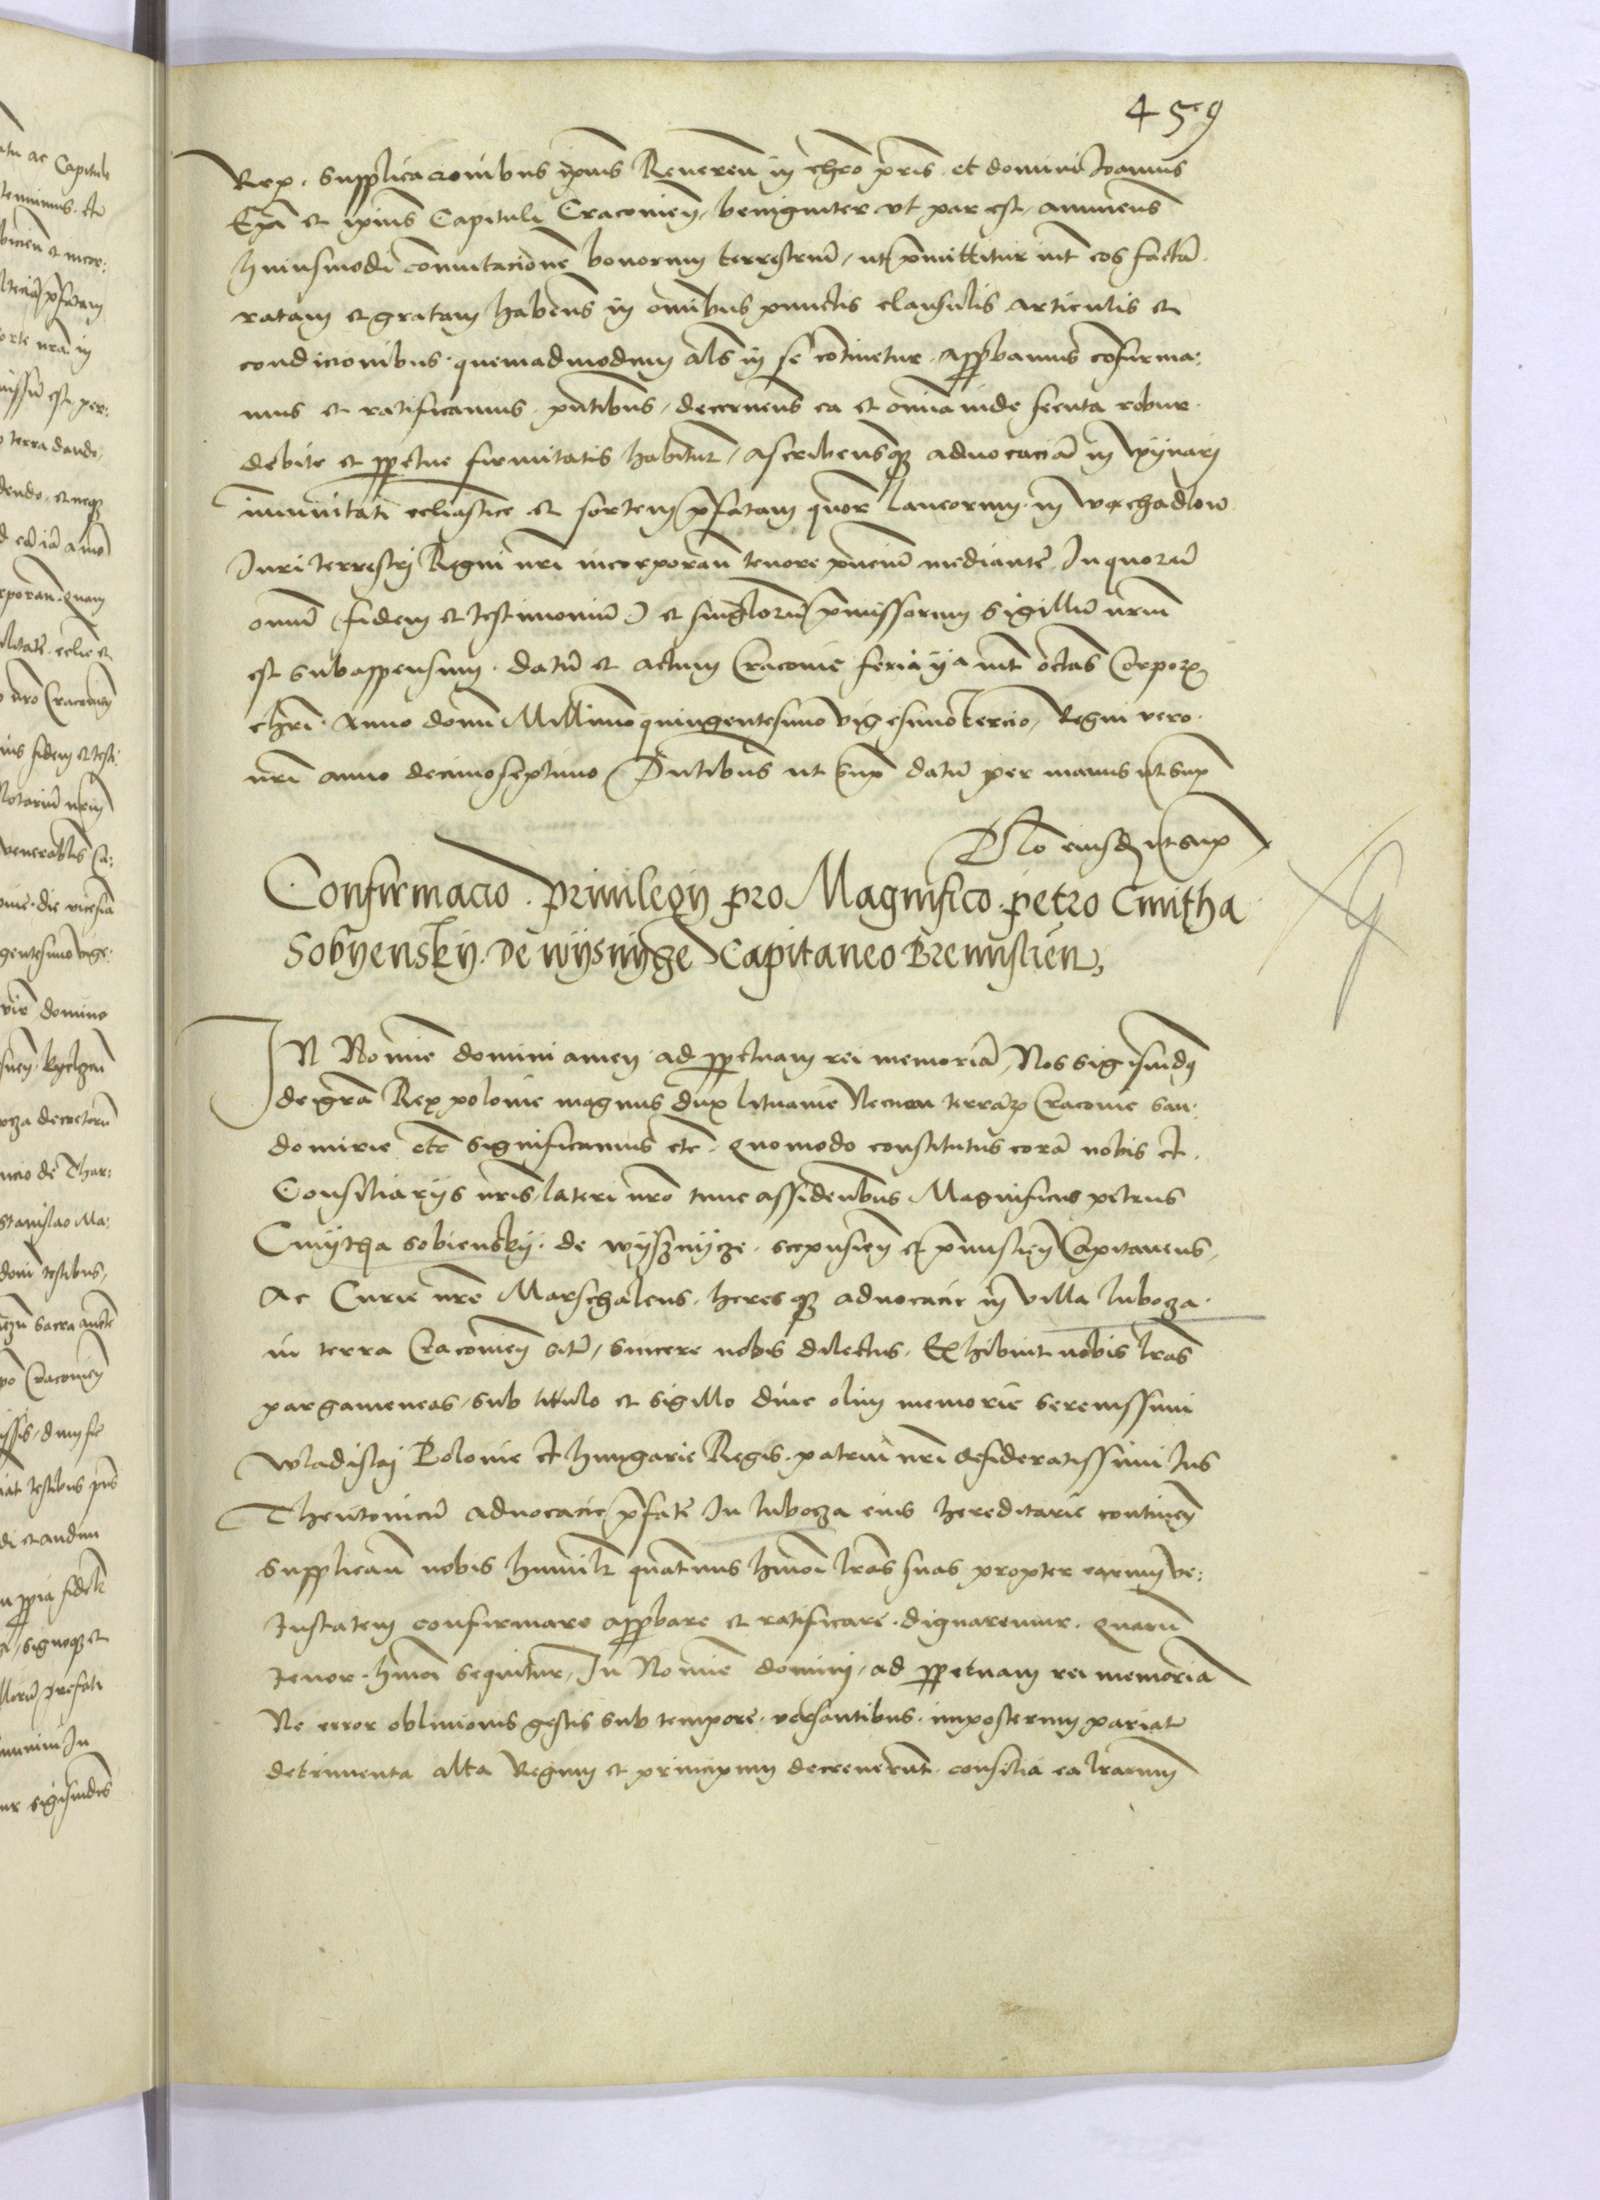 459
Rex. supplicacionibus ipsius Reveren in chro pris. et domini Joannis
Epi et ipsius Capituli Cracovien, benigniter ut par est, annuens
huiusmodi comutacione bonorum terrestriu, ut pmittitur int eos facta.
ratam et gratam habens in omibus punctis clausulis articulis et
condicionibus. quemadmodum als in se continetur. approbamus confirma:
mus et ratificamus. pntibus, decernens ea et omnia inde secuta robur.
debite et ppetue firmitatis habitur, ascribensque advocacia in
immunitati ecliastice et sortem pfatam quor laneorum. in
Juri terrestri Regni nri incorporan tenore pnciu mediante. In quoru
omni (fidem et testimoniu) et singloru pmissorum Sigillu nrum
est subappensum. datu et actum Cracovie feria ija int octas Corporis
chri. Anno domi Millimo quingentesimo vigesimo tercio, Regni vero.
nri anno decimoseptimo Pntibus ut sup datu per manus ut sup
Rlo eiusdem ut sup
Confirmacio. privilegij pro Magnifico. petro Cmitha
Sobyensky. de wysnyze Capitaneo Bremislien,
IN Nomie domini amen. ad ppetuam rei memoria, Nos sigismdus
dei gra Rex polonie magnus dux lituanie Necnon terrar Cracovie san:
domirie etc significamus etc. quomodo constitutus cora nobis et.
Consiliarijs nris, lateri nro tunc assidentibus Magnificus petrus
Cmytha sobiensky. de wysznycze. scepusien et pmislien Capitaneus,
Ac Curie nre Marschalcus. heresque advocacie in villa lubocza.
in terra Cracovien site, sincere nobis dilectus. Exhibuit nobis lras
pargameneas, sub titulo et sigillo dive olim memorie serenissimi
wladislaj Polonie et hungarie Regis. patrui nri desideratissimi Jus
Theutonicu advocacie pfate In lubocza eius hereditarie continen
supplicans nobis humilr quatinus hmoi lras suas propter earum ve:
tustatem confirmare approbare et ratificare. dignaremur. quaru
tenor. hmoi sequitur, In Nomie domini, ad ppetuam rei memoria
Ne error oblivionis gestis sub tempore. versantibus. imposterum pariat
detrimenta alta Regum et principum decreverunt. consilia ea lrarum